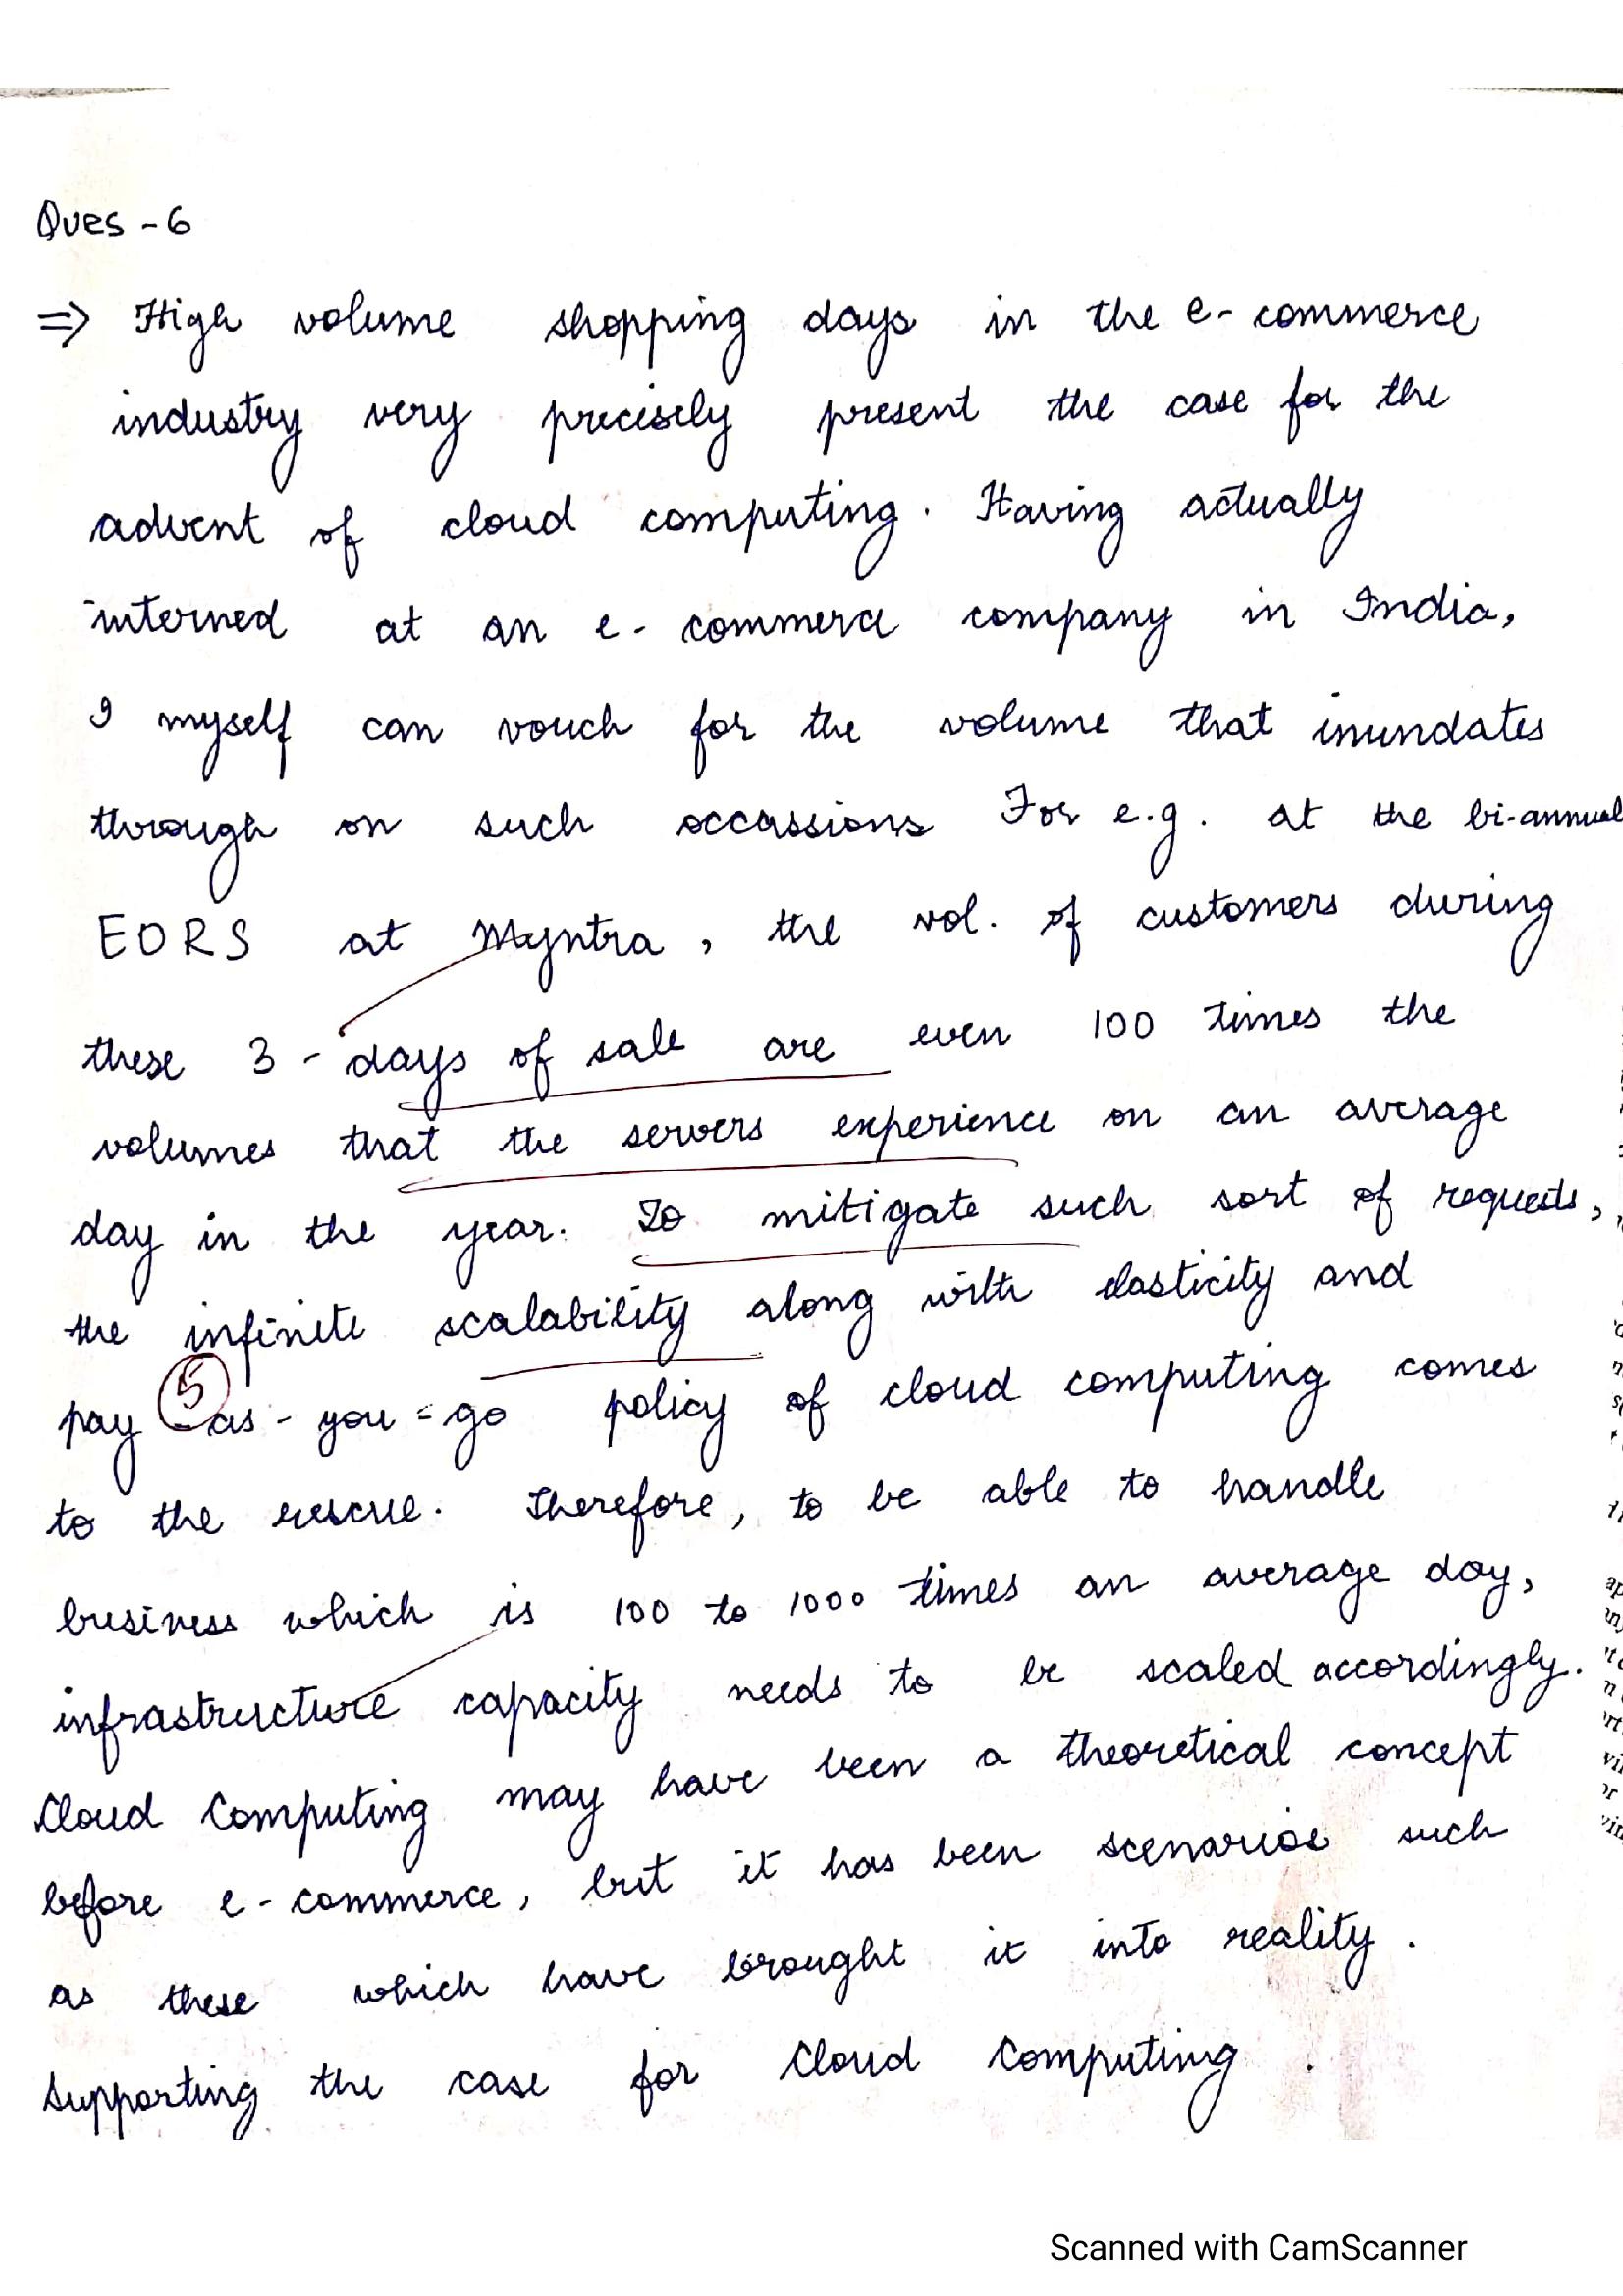 Ques - 6
⇒ High volume shopping days in the e-commerce
industry very precisely present the case for the
advent of cloud computing. Having actually
interned at an e-commerce company in India,
I myself can vouch for the volume that inundates
through on such occassions For e.g. at the bi-annual
EORS at Myntra, the vol. of customers during
these 3-days of sale are even 100 times the
volumes that the servers experience on an average
day in the year. To mitigate such sort of requests,
the infinite scalability along with elasticity and
5
pay-as-you-go policy of cloud computing comes
to the rescue. Therefore, to be able to handle
business which is 100 to 1000 times an average day,
infrastructure capacity needs to be scaled accordingly.
Cloud Computing may have been a theoretical concept
before e-commerce, but it has been scenarios such
as these which have brought it into reality.
supporting the case for Cloud Computing.
Scanned with CamScanner